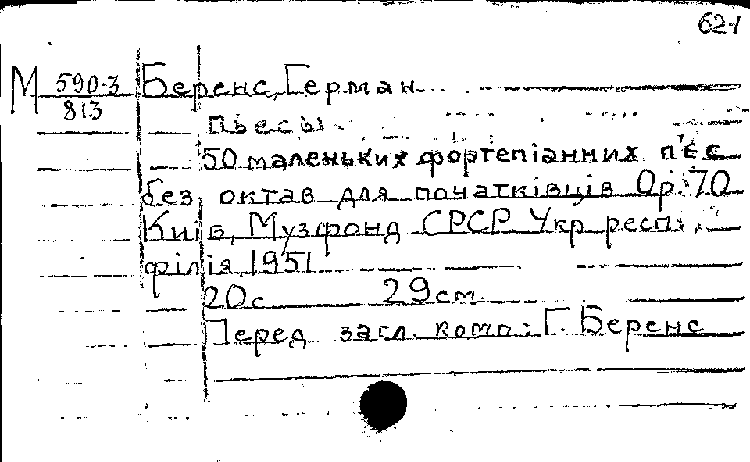 62-1
М 590-3 Беренс, Герман
813
пьесы
50 маленьких фортепіанних п'єс
без октав для початківців Op. 70
Київ, Музфонд СРСР Укр респ.
філія 1951
20с 29см
Перед засл. комп.: Г. Беренс